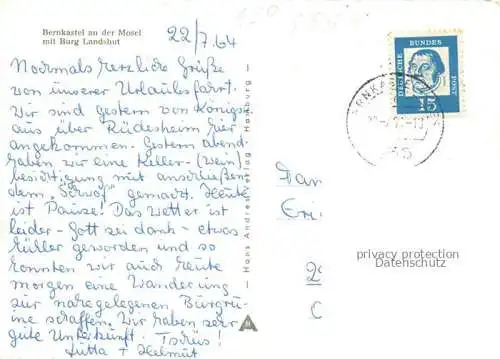 Bernkastel an der Mosel
mit Burg Landshut
22/7.64
Nochmals herzliche Grüße
von unserer Urlaubsfahrt.
Wir sind gestern von Königst.
aus über Rüdesheim hier
angekommen. Gestern abend
haben wir eine Keller-(Wein)
besichtigung mit anschließen
dem "Schwof" gemacht. Heute
ist Pause! Das Wetter ist
leider - Gott sei dank - etwas
kühler geworden und so
konnten wir auch heute
morgen eine Wanderung
zur nahegelegenen Burgrui
ine schaffen. Wir haben sehr
gute Unterkunft. Tschüs!
Jutta + Helmut
Hans Andres Verlag - Hamburg
DEUTSCHE BUNDES POST
15
privacy protection
Datenschutz